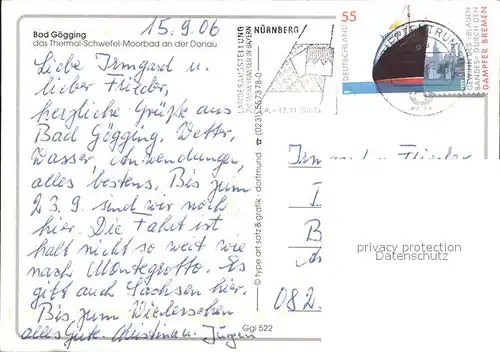 15.9.06
Bad Gögging
das Thermal-Schwefel-Moorbad an der Donau
Liebe Irmgard u.
lieber Flieder,
herzliche Grüße aus
Bad Gögging. Wetter,
Wasser, Anwendungen,
alles bestens. Bis zum
23.9. sind wir noch
hier. Die Fahrt ist
halt nicht so weit wie
nach Montegrotto. Es
gibt auch Sachsen hier.
Bis zum Wiedersehen
alles Gute. Christina u. Jürgen
Ggi 522
© type art satz & grafik · dortmund ☎ (0231) 567378-0
LANDESAUSSTELLUNG
NÜRNBERG/
55
DEUTSCHLAND
GEWINN DES »BLAUEN
BANDES« DURCH DEN
DAMPFER BREMEN
Irmgard
082
privacy protection